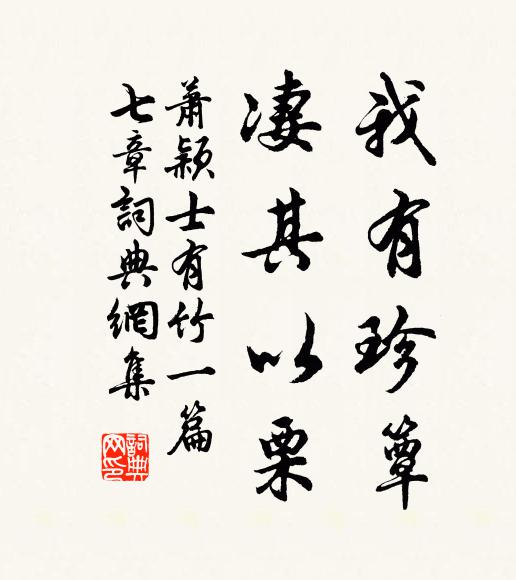 我有珍簟
凄其以栗
萧颖士有竹一篇
七章詞典網集
詞典网印